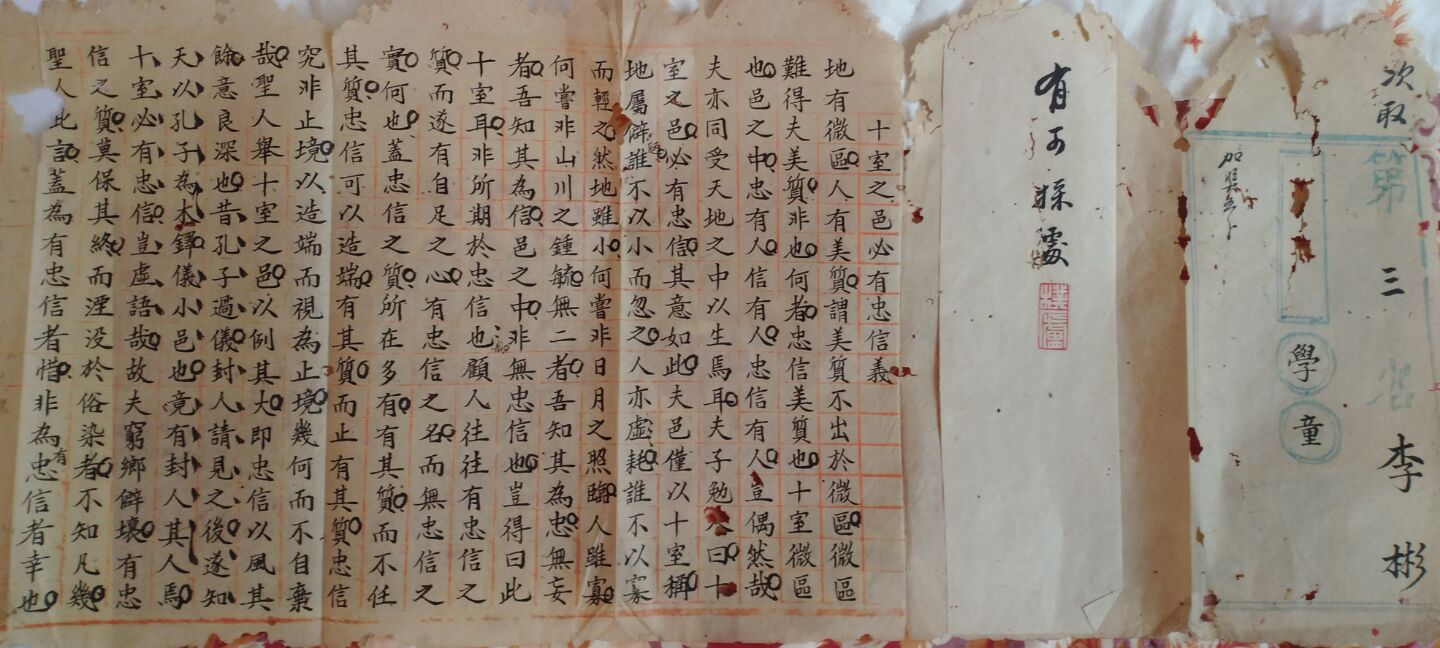 次取
第三名 李彬
加獎
學童
有可採處
十室之邑必有忠信義
地有微區人有美質謂美質不出於微區微區
難得夫美質非也何者忠信美質也十室微區
也邑之中忠有人信有人忠信有人豈偶然哉
夫亦同受天地之中以生焉耳夫子勉人曰十
室之邑必有忠信其意如此夫邑僅以十室稱
地屬僻誰不以小而忽之人亦虛耗誰不以寡
而輕之然地雖小何嘗非日月之照臨人雖寡
何嘗非山川之鍾毓無二者吾知其為忠無妄
者吾知其為信邑之中非無忠信也豈得曰此
十室耳非所期於忠信也顧人往往有忠信之
質而遂有自足之心有忠信之名而無忠信之
實何也蓋忠信之質所在多有有其質而不任
其質忠信可以造端有其質而止有其質忠信
究非止境以造端而視為止境幾何而不自棄
哉聖人舉十室之邑以例其大即忠信以風其
餘意良深也昔孔子過儀封人請見之後遂知
天以孔子為木鐸儀小邑也竟有封人其人焉
十室必有忠信豈虛語哉故夫窮鄉僻壤有忠
信之質莫保其終而湮没於俗染者不知凡幾
聖人此言蓋為有忠信者惜非為有忠信者幸也